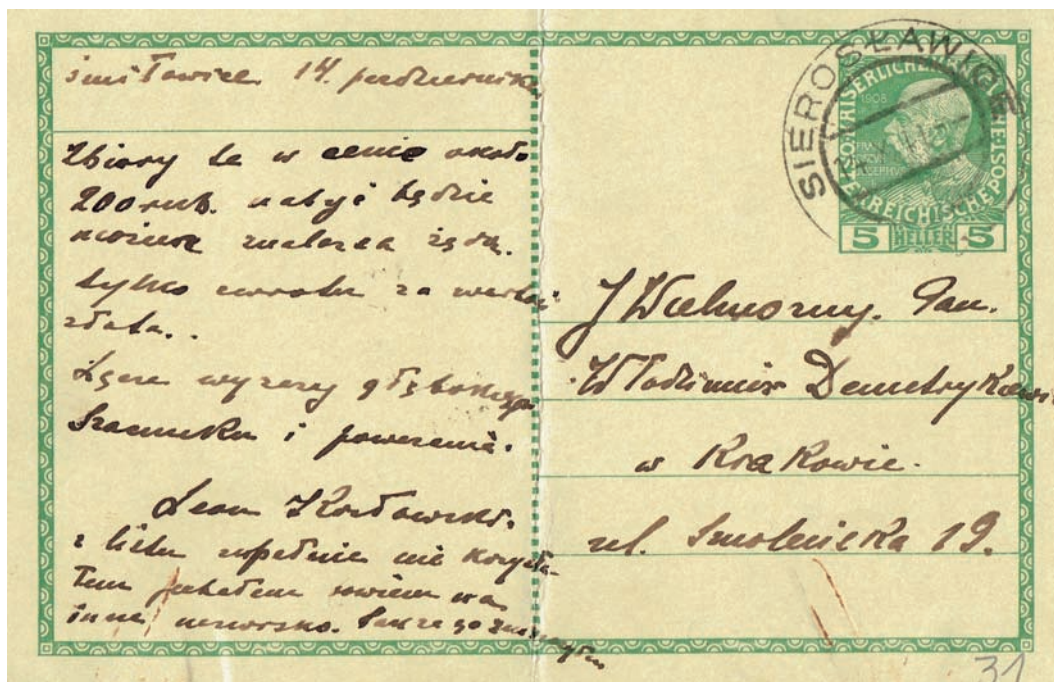 14. października
Zbiory te w cenie około
200 rub. nabyć będzie
można znalazca żąda
tylko zwrotu za wartość
złota..
Łączę wyrazy głębokiego
Szacunku i poważania.
Leon Kozłowski.
z listu zupełnie nie korzysta-
łem jechałem
inne nazwisko.
SIEROSŁAWICE
KAISERLICHE KÖNIGLICHE
ÖSTERREICHISCHE POST
1908
5 HELLER 5
JWielmożny. Pan.
Włodzimierz Demetrykiewicz
w Krakowie.
ul. Smoleńska 19.
31